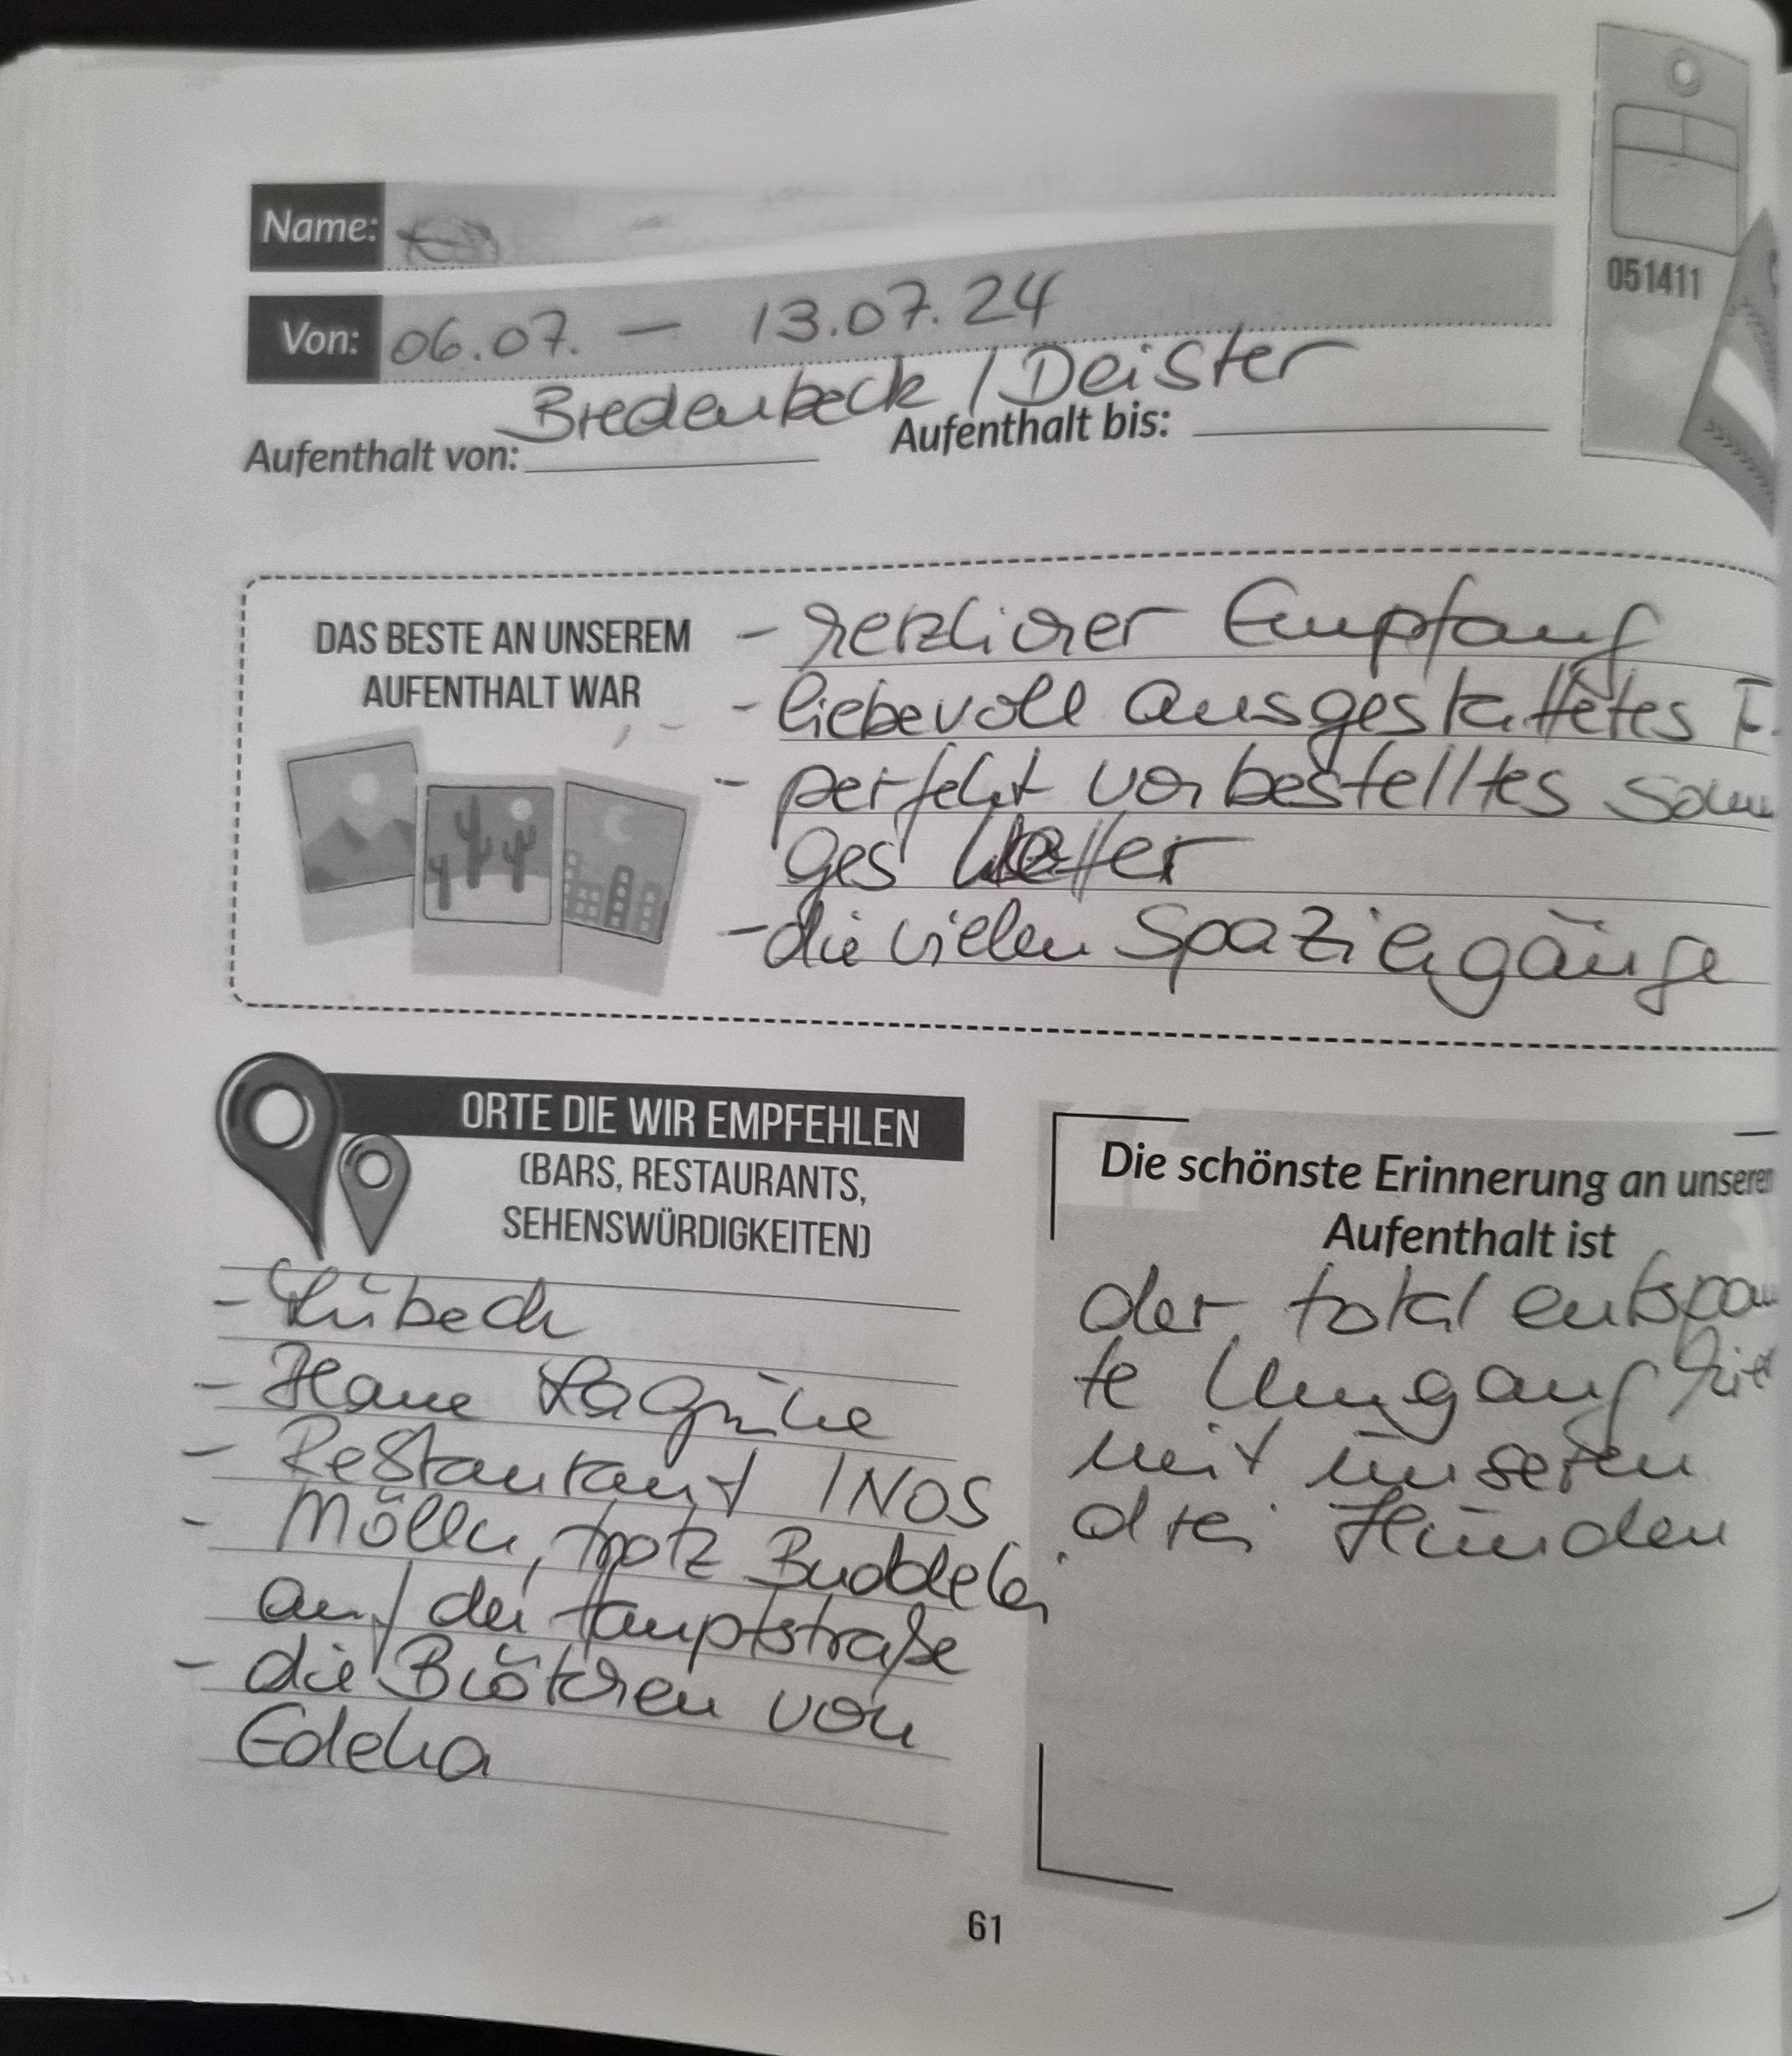 Name:
Von: 06.07. – 13.07.24
Bredenbeck / Deister
Aufenthalt von: Aufenthalt bis:
051411
DAS BESTE AN UNSEREM
AUFENTHALT WAR
- herzlicher Empfang
- liebevoll ausgestattetes F.
- perfekt vorbestelltes
ges Wetter
- die vielen Spaziergänge
ORTE DIE WIR EMPFEHLEN
(BARS, RESTAURANTS,
SEHENSWÜRDIGKEITEN)
- Lübeck
- Hame
- Restaurant INOS
- Mölln, trotz Buddelei
auf der Hauptstraße
- die Brötchen von
Edeka
Die schönste Erinnerung an unseren
Aufenthalt ist
der total entspan
te Umgang hier
mit unseren
drei Hunden
61